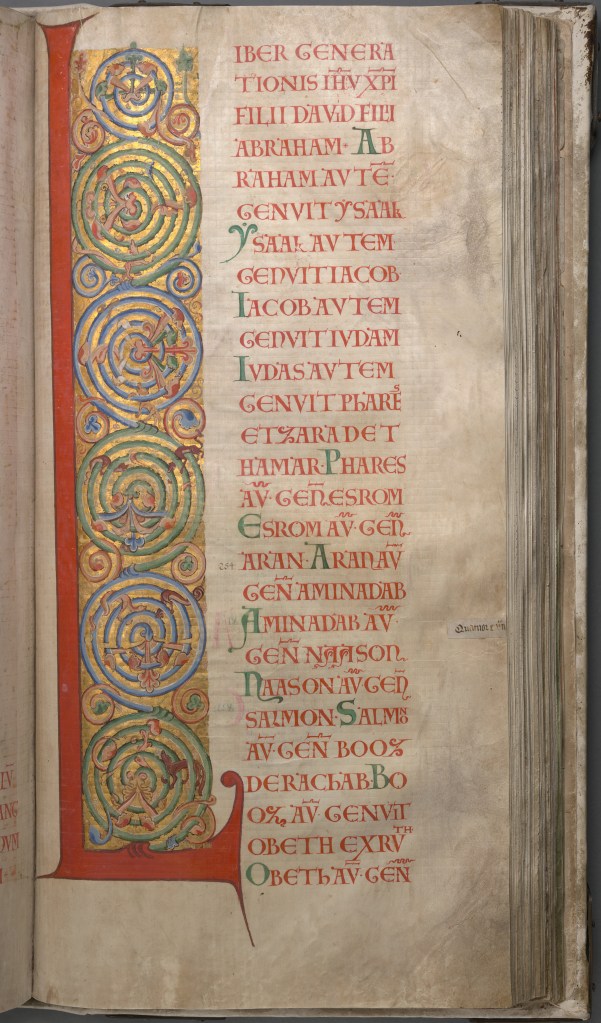 LIBER GENERA
TIONIS IHV XPI
FILII DAVID FILI
ABRAHAM· AB
RAHAM AVTE·
GENVIT YSAAK
YSAAK AVTEM
GENVIT IACOB·
IACOB AVTEM
GENVIT IVDAM
IVDAS· AVTEM
GENVIT PHARES
ET ZARA DE T
HAMAR· PHARES
AV· GEN ESROM
ESROM AV· GEN
ARAN· ARAN AV
GEN AMINADAB
AMINADAB AV·
GEN NAASON·
NAASON AV GEN
SALMON· SALMO
AV· GEN BOOZ
DE RACHAB· BO
OZ, AV· GENVIT
OBETH EX RVTH
OBETH AV· GEN
254